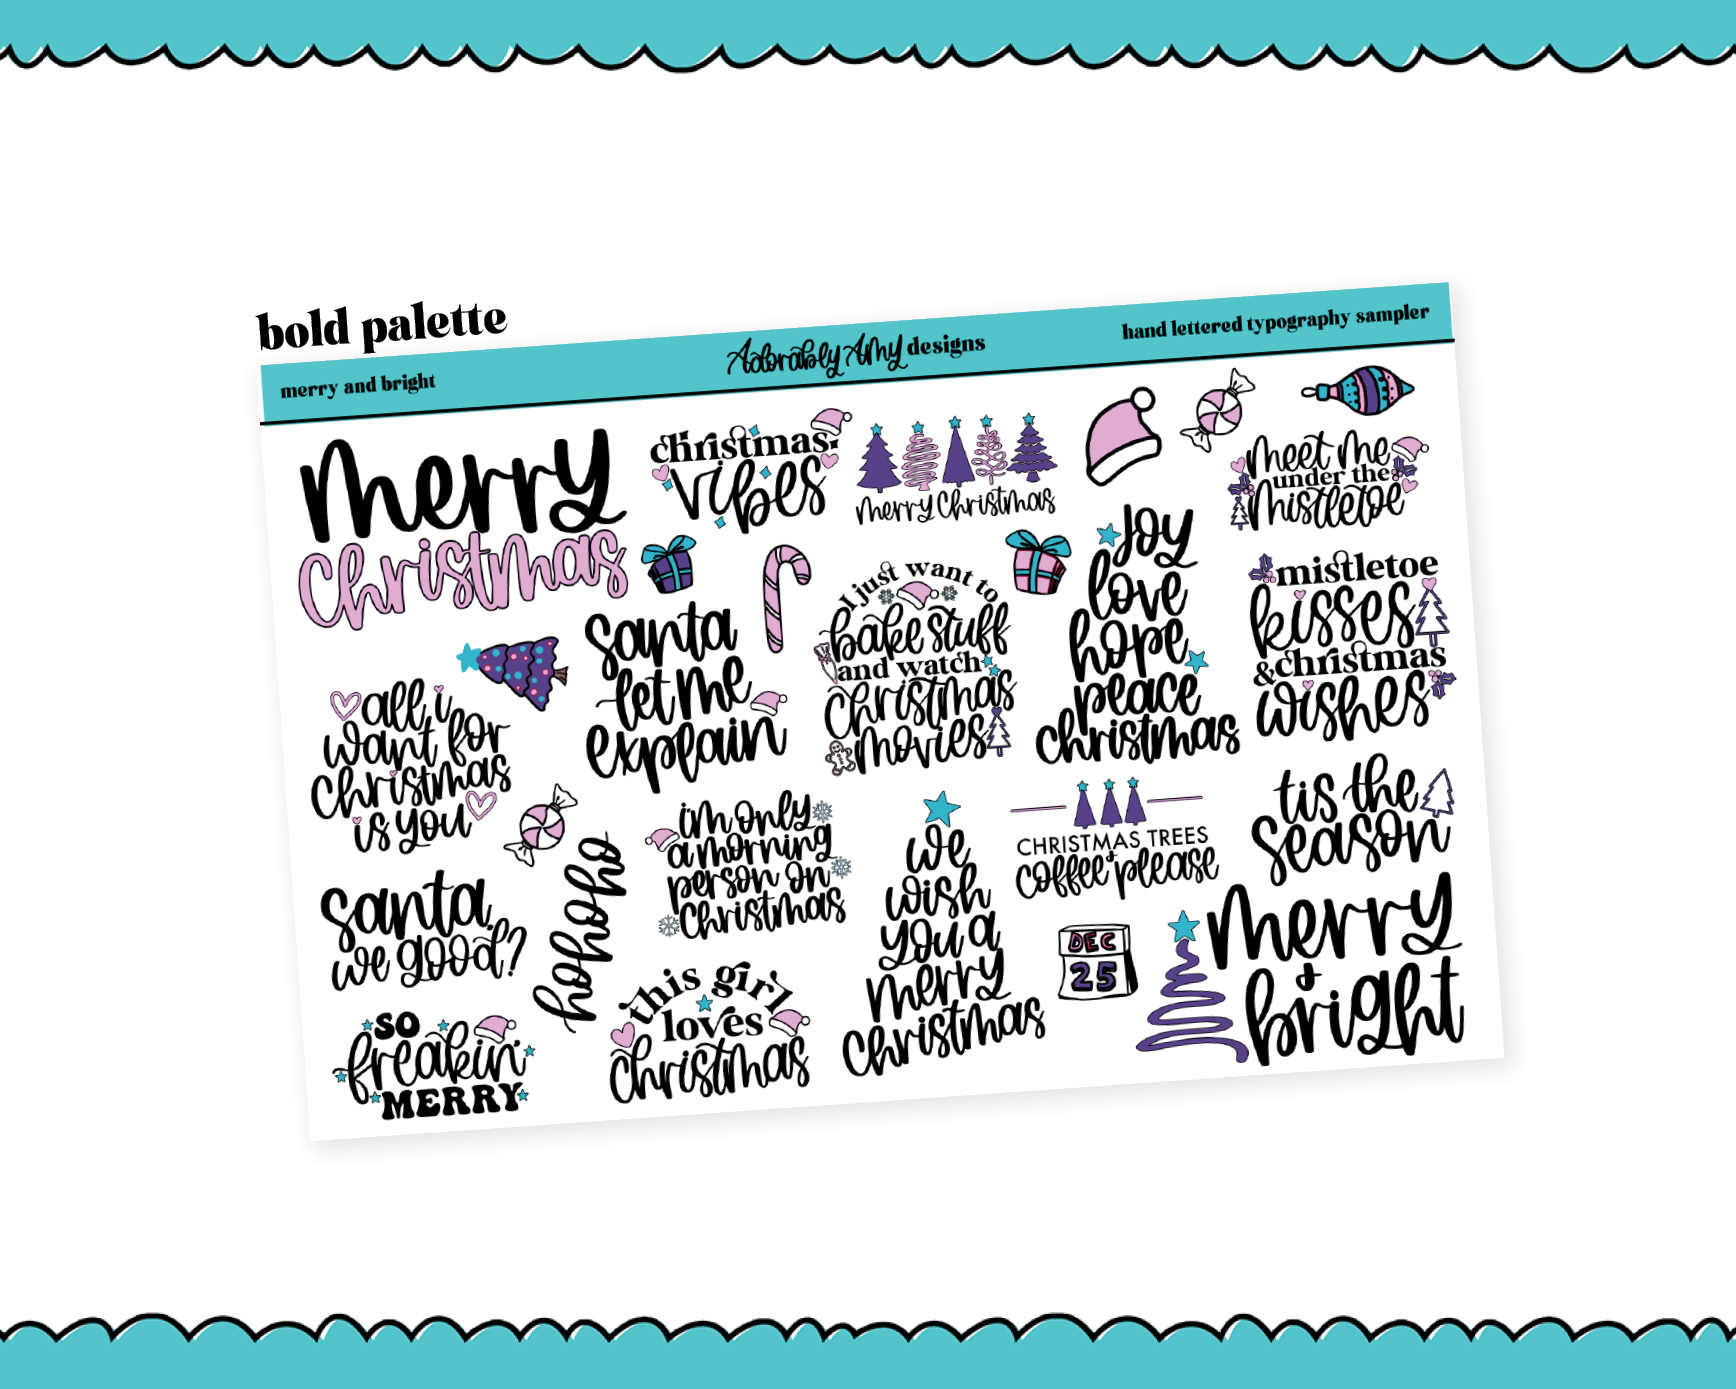 bold palette
merry and bright
Adorably Amy designs
hand lettered typography sampler
merry
Christmas
christmas
vibes
merry Christmas
meet me
under the
mistletoe
joy
love
hope
peace
christmas
mistletoe
kisses
&christmas
wishes
santa
let me
explain
I just want to
bake stuff
and watch
christmas
movies
all i
want for
christmas
is you
i'm only
a morning
person on
christmas
we
wish
you a
merry
christmas
CHRISTMAS TREES
coffee + please
tis the
season
santa
we good?
hohoho
DEC
25
merry
+
bright
so
freakin'
MERRY
this girl
loves
christmas